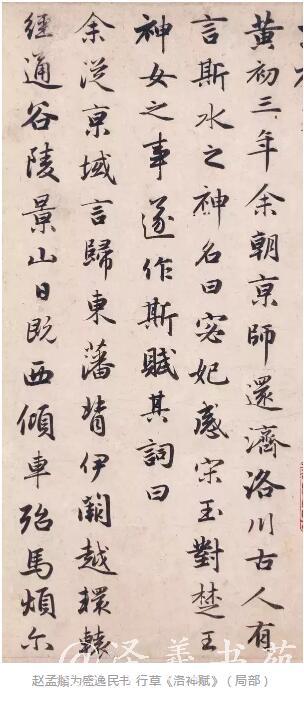 黃初三年余朝京師還濟洛川古人有
言斯水之神名曰宓妃感宋玉對楚王
神女之事遂作斯賦其詞曰
余從京域言歸東藩背伊闕越轘轅
經通谷陵景山日既西傾車殆馬煩尔
赵孟頫为盛逸民书 行草《洛神赋》（局部）